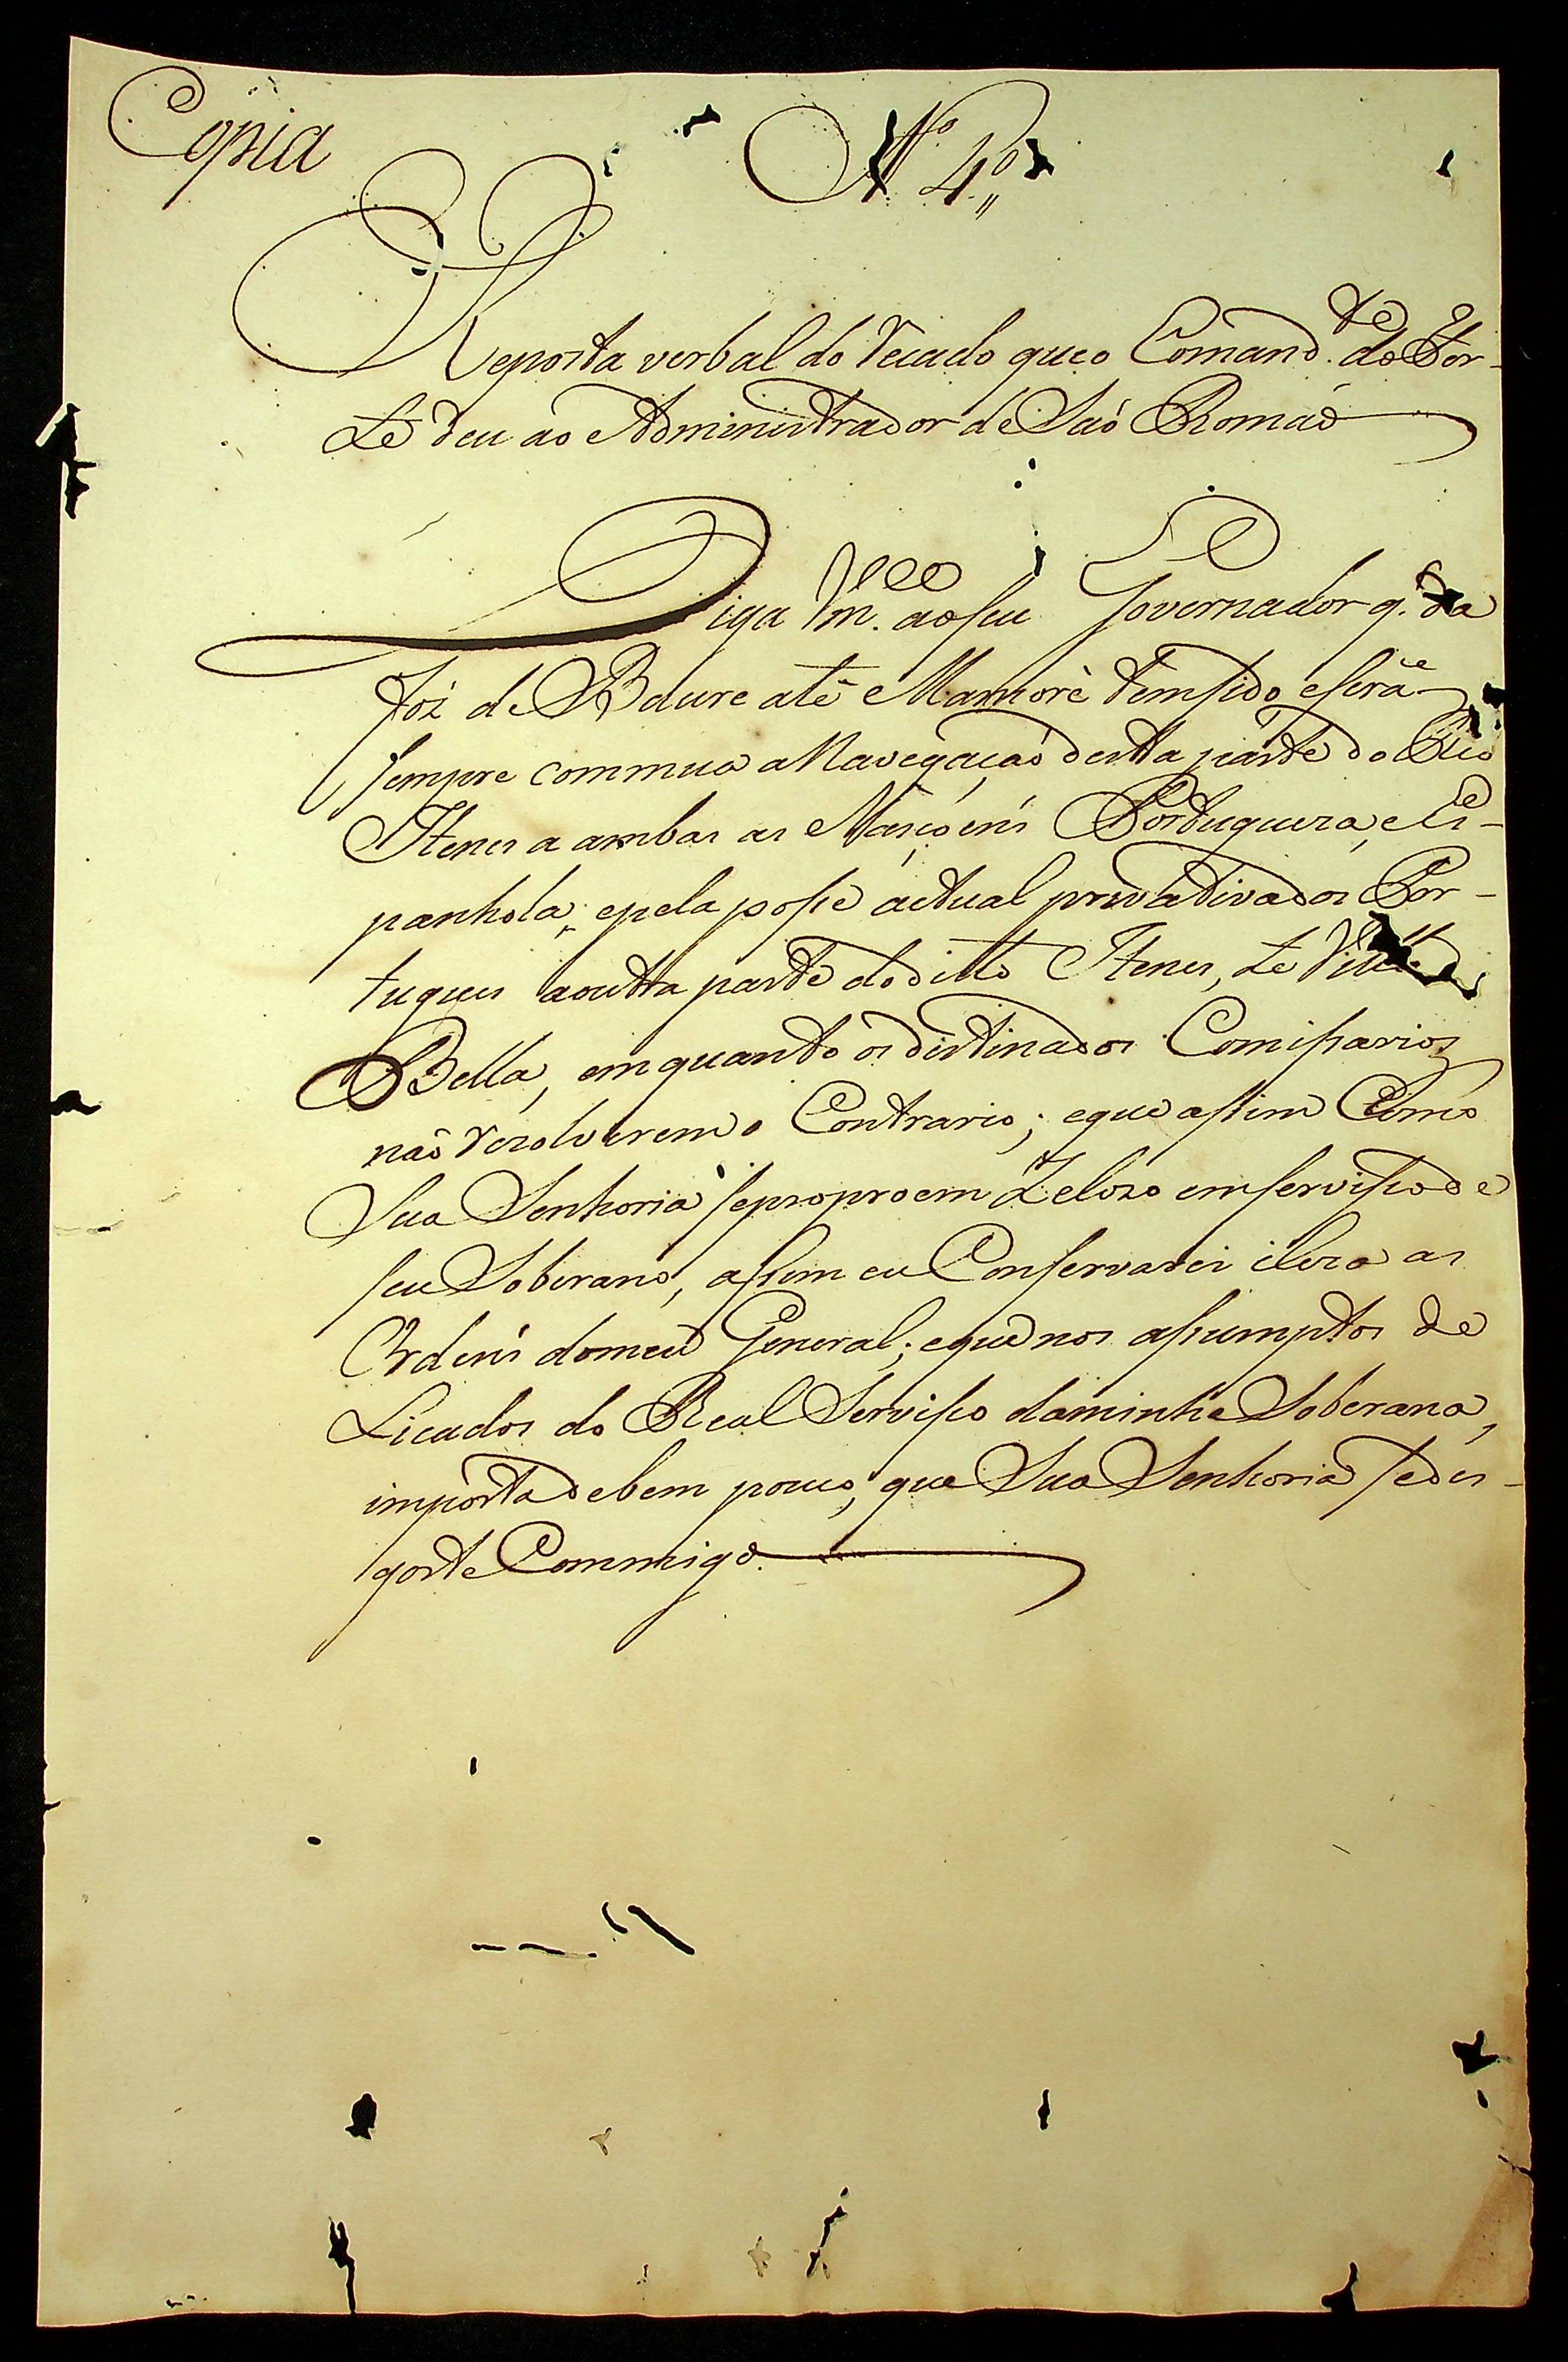 Copia
N.º 4.º
Reposta verbal do recado que o Comand.te do For-
te deu ao Administrador de Saõ Romaõ
Diga Vm.ce ao seu Governador q. da
Foz de Baure até Mamorè tem sido, e será
sempre commua a Navegaçaõ desta parte do Rio
Itenes a ambas as Naçoens Portugueza, e Es-
panhola; e pela posse actual privativa dos Por-
tugues a outra parte do ditto Itenes, té Villa
Bella, em quanto os distinados Comissarios
naõ rezolverem o Contrario; e que assim Como
Sua Senhoria se propoem Zelozo em servisso de
seu Soberano, assim eu Conservarei ileza as
Ordens do meu General; e que nos assumptos de
Licados do Real Servisso da minha Soberana,
importa de bem pouco, que Sua Senhoria se des-
goste Commigo.